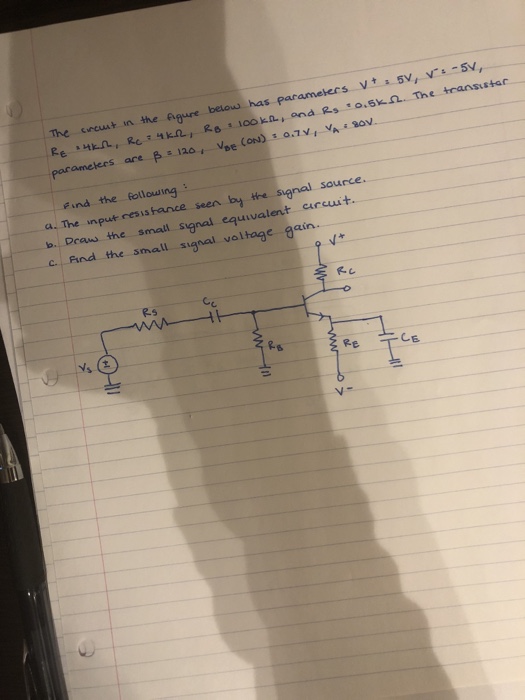 The circuit in the figure below has parameters V+ = 5V, V- = -5V,
RE = 4kΩ, RC = 4kΩ, RB = 100kΩ, and RS = 0.5kΩ. The transistor
parameters are β = 120, VBE (ON) = 0.7V, VA = 80V.
Find the following:
a. The input resistance seen by the signal source.
b. Draw the small signal equivalent circuit.
c. Find the small signal voltage gain.
V+
RC
RS
CC
RB
RE
CE
VS
V-